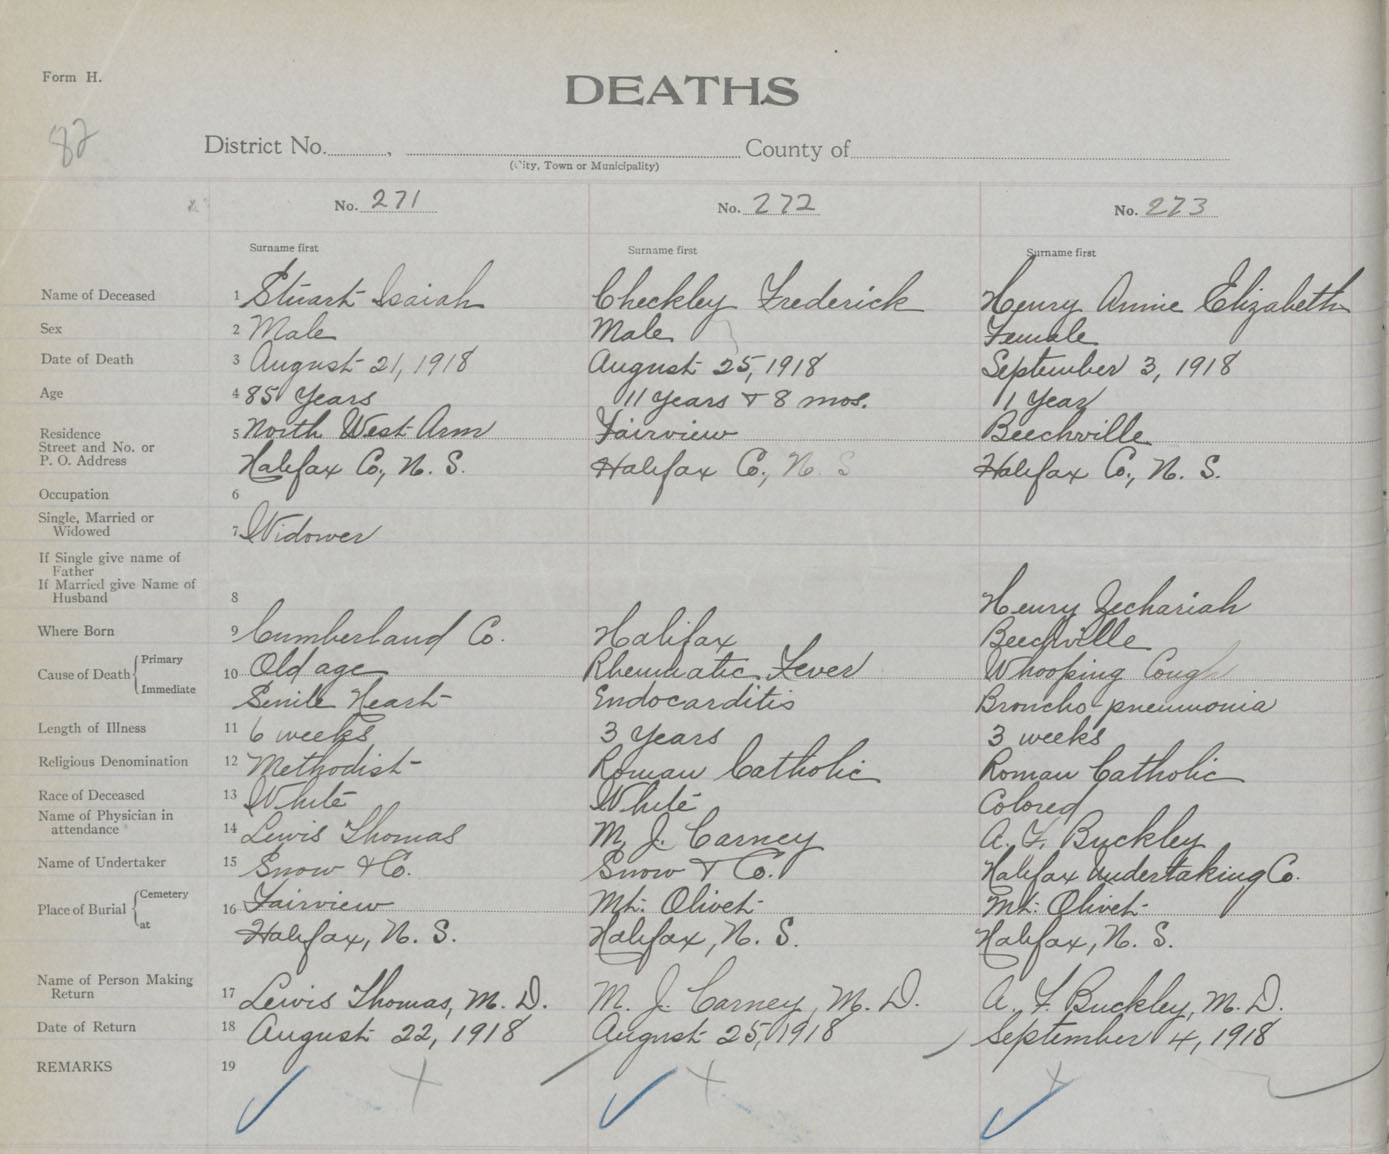 Form H.
DEATHS
82
District No. , County of
(City, Town or Municipality)
No. 271 No. 272 No. 273
Surname first Surname first Surname first
Name of Deceased 1 Stuart Isaiah Checkley Frederick Henry Annie Elizabeth
Sex 2 Male Male Female
Date of Death 3 August 21, 1918 August 25, 1918 September 3, 1918
Age 4 85 Years 11 Years & 8 mos. 1 Year
Residence 5 North West Arm Fairview Beechville
Street and No. or
P. O. Address Halifax Co., N. S. Halifax Co., N. S Halifax Co., N. S.
Occupation 6
Single, Married or
Widowed 7 Widower
If Single give name of
Father
If Married give Name of
Husband 8 Henry Zechariah
Where Born 9 Cumberland Co. Halifax Beechville
Cause of Death Primary 10 Old age Rheumatic Fever Whooping Cough
Immediate Senile Heart Endocarditis Broncho-pneumonia
Length of Illness 11 6 weeks 3 Years 3 weeks
Religious Denomination 12 Methodist Roman Catholic Roman Catholic
Race of Deceased 13 White White Colored
Name of Physician in
attendance 14 Lewis Thomas M. J. Carney A. F. Buckley
Name of Undertaker 15 Snow & Co. Snow & Co. Halifax Undertaking Co.
Place of Burial Cemetery 16 Fairview Mt. Olivet Mt. Olivet
at Halifax, N. S. Halifax, N. S. Halifax, N. S.
Name of Person Making
Return 17 Lewis Thomas, M. D. M. J. Carney, M. D. A. F. Buckley, M. D.
Date of Return 18 August 22, 1918 August 25, 1918 September 4, 1918
REMARKS 19